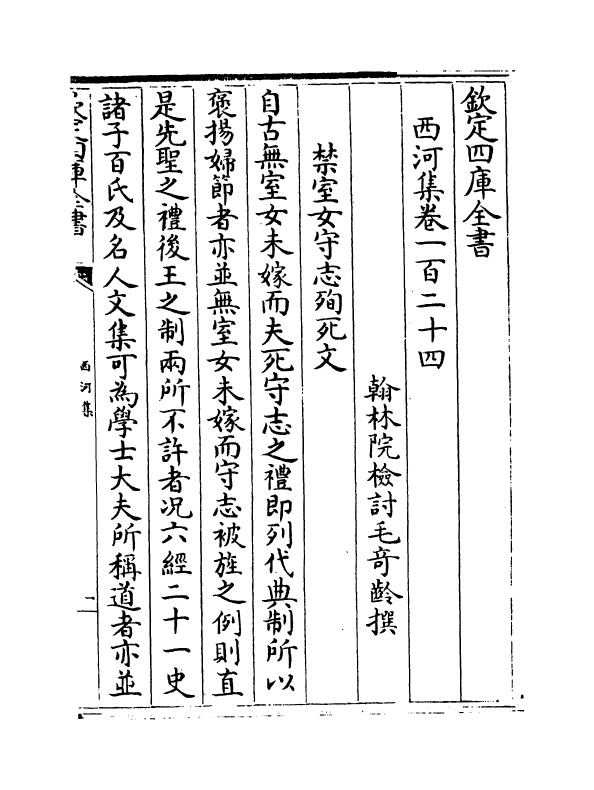 欽定四庫全書
西河集卷一百二十四
翰林院檢討毛奇齡撰
禁室女守志殉死文
自古無室女未嫁而夫死守志之禮即列代典制所以
褒揚婦節者亦並無室女未嫁而守志被旌之例則直
是先聖之禮後王之制兩所不許者况六經二十一史
諸子百氏及名人文集可為學士大夫所稱道者亦並
欽定四庫全書
西河集
一